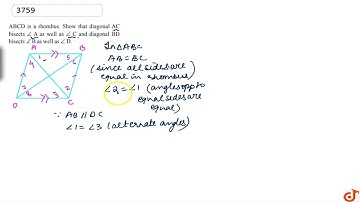 3759
ABCD is a rhombus. Show that diagonal AC
bisects ∠A as well as ∠C and diagonal BD
bisects ∠B as well as ∠D.
A B
D C
In△ABC
AB=BC
(since all sides are
equal in rhombus)
∠2=∠1 (angles opp to
equal sides are
equal)
∵ AB//DC
∠1=∠3 (alternate angles)